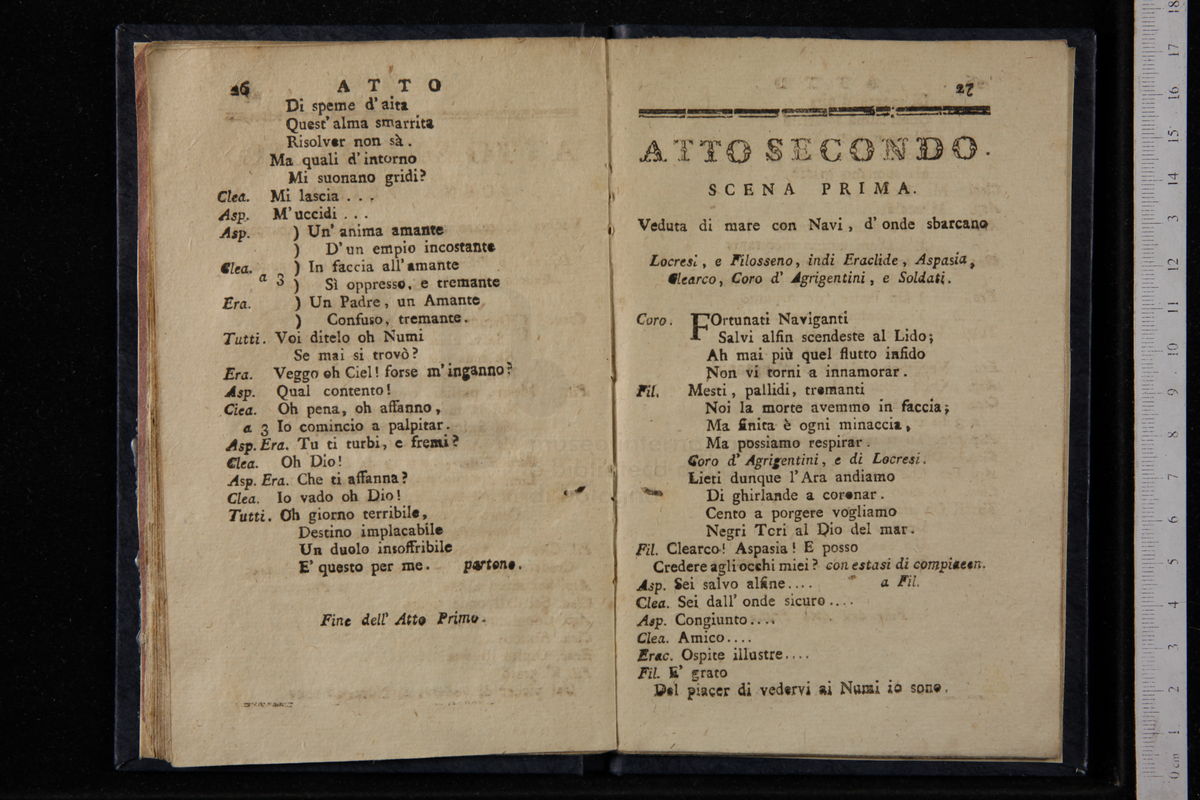 26 ATTO
Di speme d'aita
Quest' alma smarrita
Risolver non sà.
Ma quali d'intorno
Mi suonano gridi?
Clea. Mi lascia . . .
Asp. M'uccidi . . .
Asp. ) Un' anima amante
) D'un empio incostante
Clea. ) In faccia all'amante
a 3 ) Sì oppresso, e tremante
Era. ) Un Padre, un Amante
) Confuso, tremante.
Tutti. Voi ditelo oh Numi
Se mai si trovò?
Era. Veggo oh Ciel! forse m'inganno?
Asp. Qual contento!
Clea. Oh pena, oh affanno,
a 3 Io comincio a palpitar.
Asp. Era. Tu ti turbi, e fremi?
Clea. Oh Dio!
Asp. Era. Che ti affanna?
Clea. Io vado oh Dio!
Tutti. Oh giorno terribile,
Destino implacabile
Un duolo insoffribile
E' questo per me. partono.
Fine dell' Atto Primo.
27
ATTO SECONDO.
SCENA PRIMA.
Veduta di mare con Navi, d'onde sbarcano
Locresi, e Filosseno, indi Eraclide, Aspasia,
Clearco, Coro d' Agrigentini, e Soldati.
Coro. FOrtunati Naviganti
Salvi alfin scendeste al Lido;
Ah mai più quel flutto infido
Non vi torni a innamorar.
Fil. Mesti, pallidi, tremanti
Noi la morte avemmo in faccia;
Ma finita è ogni minaccia,
Ma possiamo respirar.
Coro d' Agrigentini, e di Locresi.
Lieti dunque l'Ara andiamo
Di ghirlande a coronar.
Cento a porgere vogliamo
Negri Tori al Dio del mar.
Fil. Clearco! Aspasia! E posso
Credere agli occhi miei? con estasi di
Asp. Sei salvo alfine.... a Fil.
Clea. Sei dall' onde sicuro....
Asp. Congiunto....
Clea. Amico....
Erac. Ospite illustre....
Fil. E' grato
Del piacer di vedervi ai Numi io sono.